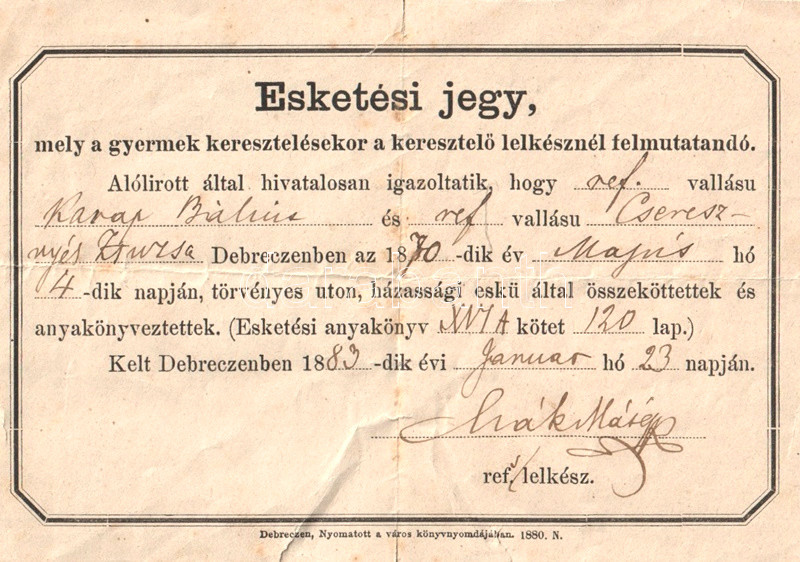 Esketési jegy,
mely a gyermek keresztelésekor a keresztelő lelkésznél felmutatandó.
Alólirott által hivatalosan igazoltatik, hogy ref. vallásu
és ref vallásu Cseresz-
nyés Zsuzsa Debreczenben az 1870-dik év Majus hó
4-dik napján, törvényes uton, házassági eskü által összeköttettek és
anyakönyveztettek. (Esketési anyakönyv XVI A kötet 120 lap.)
Kelt Debreczenben 1883-dik évi Januar hó 23 napján.
ref. s/lelkész.
Debreczen, Nyomatott a város könyvnyomdájában. 1880. N.